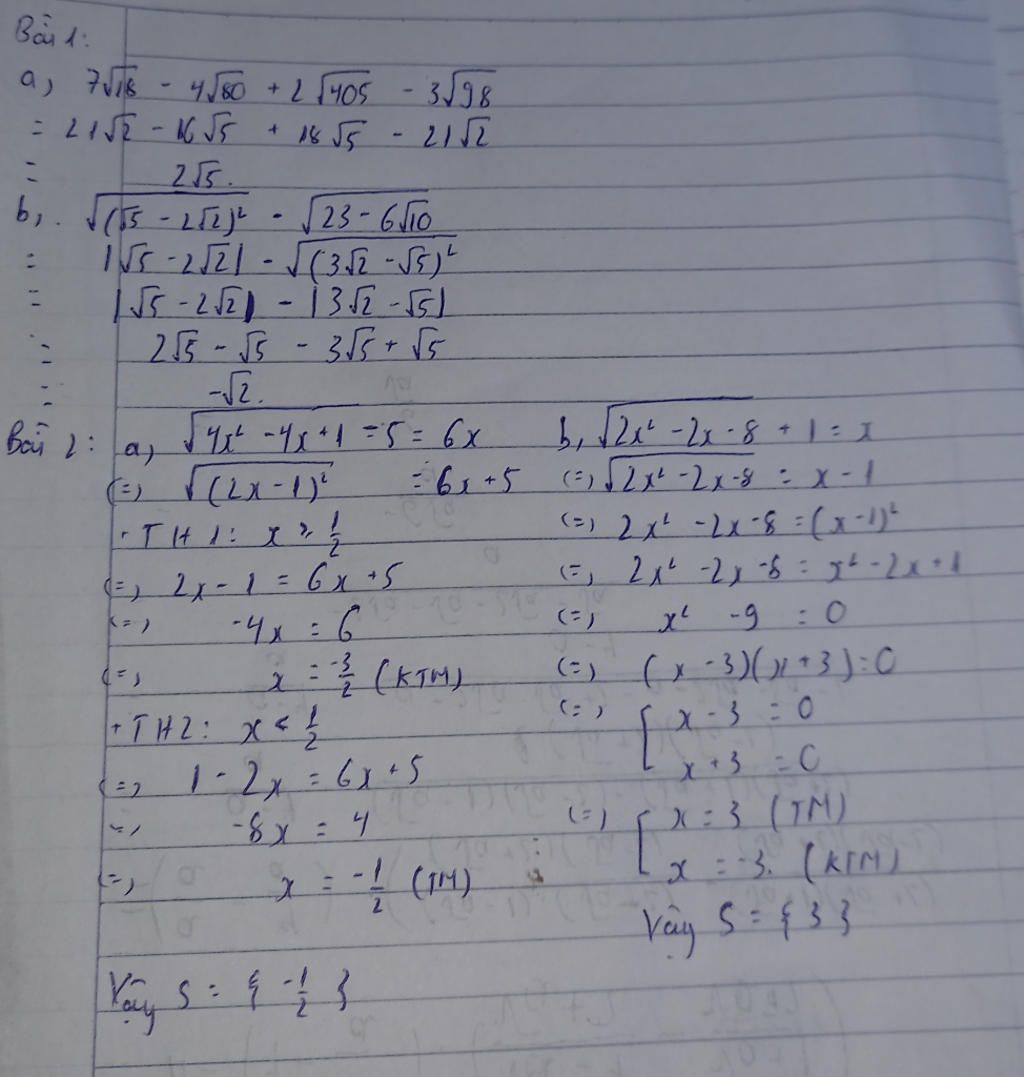 Bài 1:
a, 7√18 - 4√80 + 2√405 - 3√98
= 21√2 - 16√5 + 18√5 - 21√2
= 2√5.
b, √(√5 - 2√2)² - √23 - 6√10
= |√5 - 2√2| - √(3√2 - √5)²
= |√5 - 2√2| - |3√2 - √5|
= 2√5 - √5 - 3√5 + √5
= -√2.
Bài 2: a, √4x² - 4x + 1 - 5 = 6x
(=) √(2x - 1)² = 6x + 5
+ TH1: x ≥ 1/2
(=) 2x - 1 = 6x + 5
(=) -4x = 6
(=) x = -3/2 (KTM)
+ TH2: x < 1/2
(=) 1 - 2x = 6x + 5
(=) -8x = 4
(=) x = -1/2 (TM)
Vậy S = { -1/2 }
b, √2x² - 2x - 8 + 1 = x
(=) √2x² - 2x - 8 = x - 1
(=) 2x² - 2x - 8 = (x - 1)²
(=) 2x² - 2x - 8 = x² - 2x + 1
(=) x² - 9 = 0
(=) (x - 3)(x + 3) = 0
(=) [ x - 3 = 0
x + 3 = 0
(=) [ x = 3 (TM)
x = -3. (KTM)
Vậy S = { 3 }